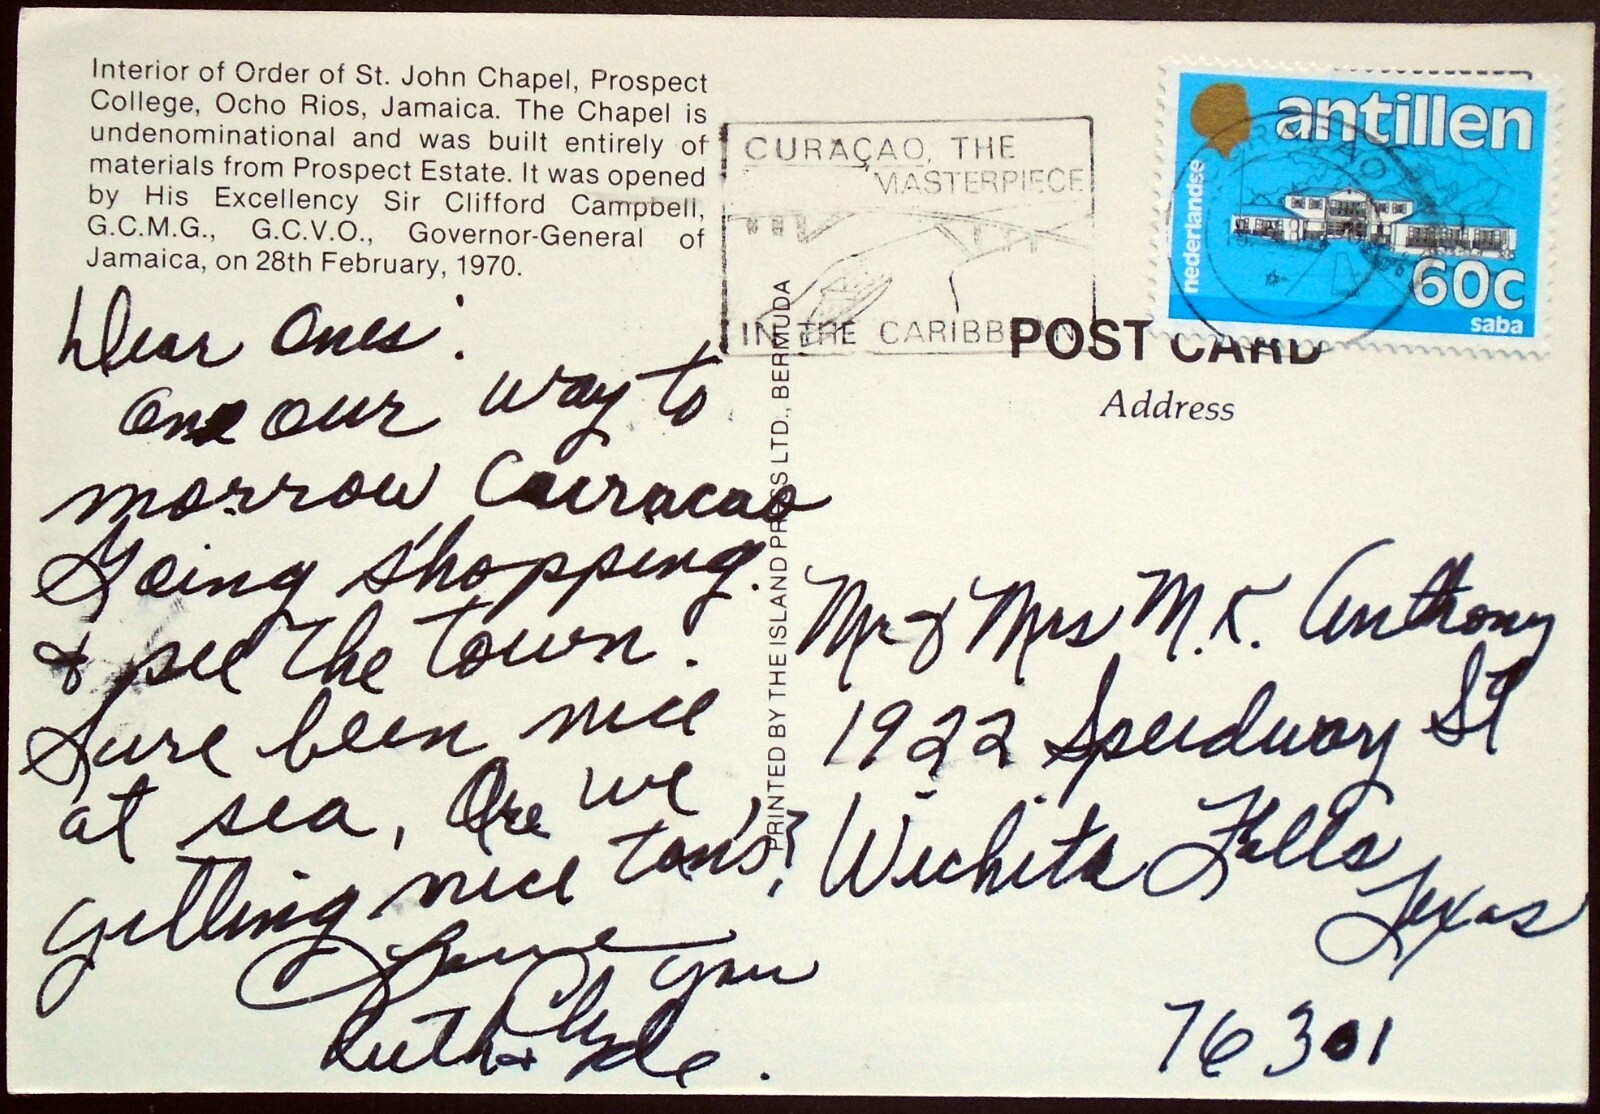 Interior of Order of St. John Chapel, Prospect
College, Ocho Rios, Jamaica. The Chapel is
undenominational and was built entirely of
materials from Prospect Estate. It was opened
by His Excellency Sir Clifford Campbell,
G.C.M.G., G.C.V.O., Governor-General of
Jamaica, on 28th February, 1970.
Dear Ones:
One our way to
morrow Curacao
Going shopping.
& see the town.
Sure been nice
at sea, Are we
getting nice tans?
Love you
Ruth & Clyde.
PRINTED BY THE ISLAND PRESS LTD., BERMUDA
CURAÇAO, THE
MASTERPIECE
IN THE CARIBBEAN
nederlandse
antillen
60c
saba
CURAÇAO
POST CARD
Address
Mr & Mrs M.K. Anthony
1922 Speedway St
Wichita Falls
Texas
76301